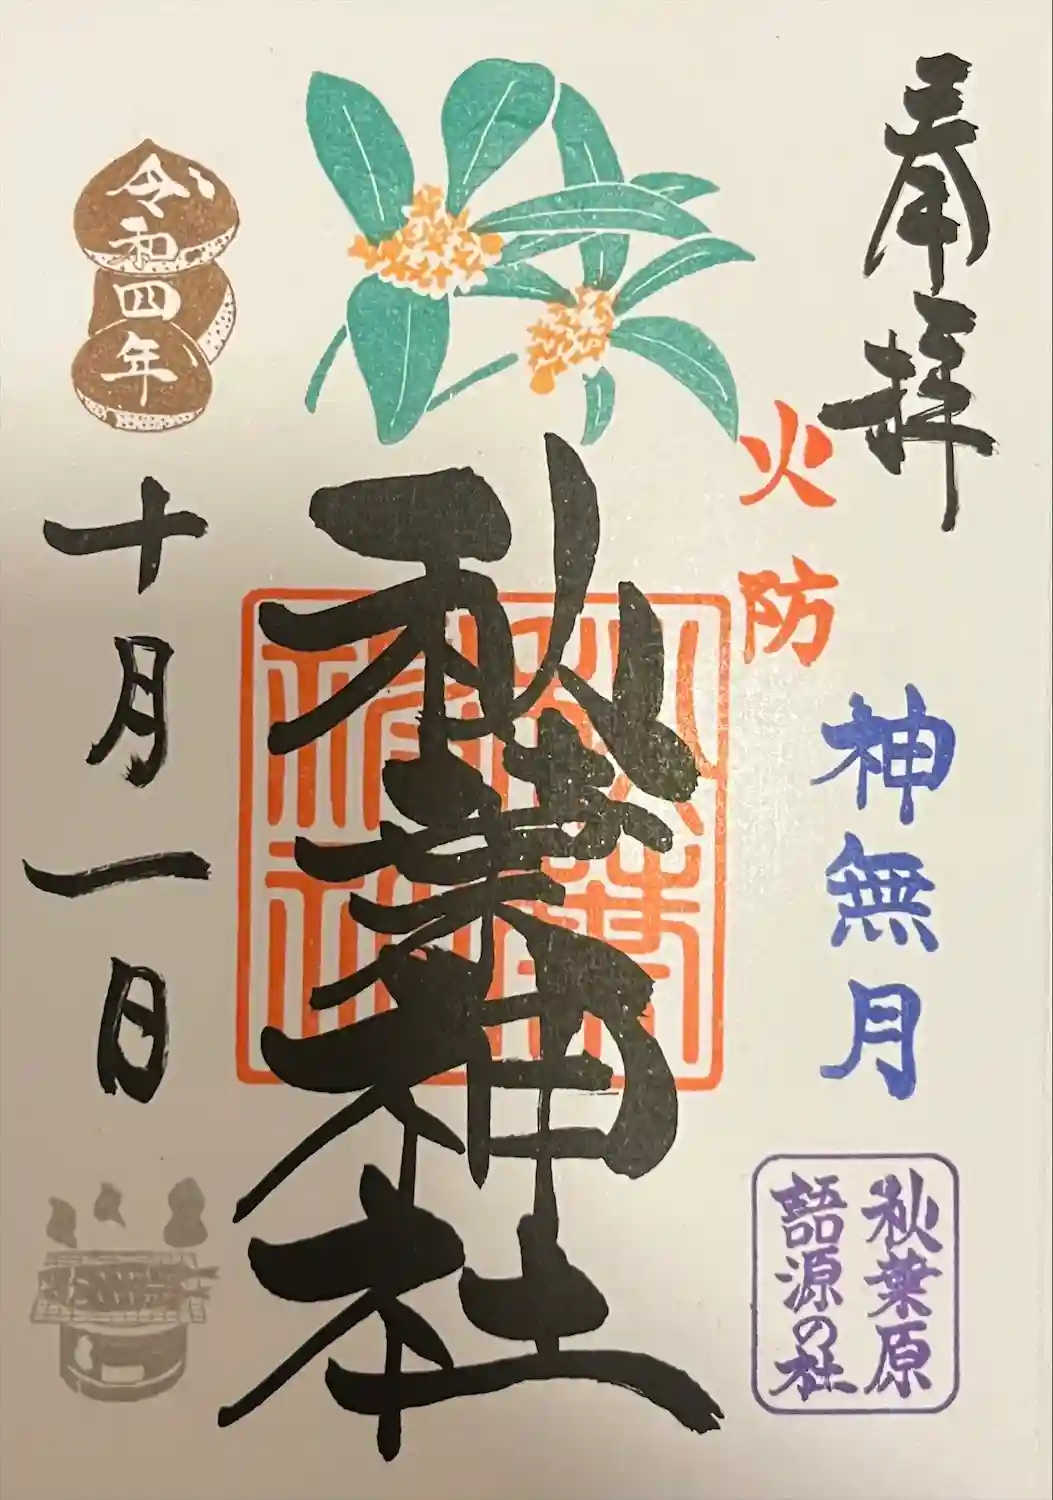 奉拝
火防
神無月
秋葉原
語源の社
秋葉神社
秋葉
神社
令和四年
十月一日